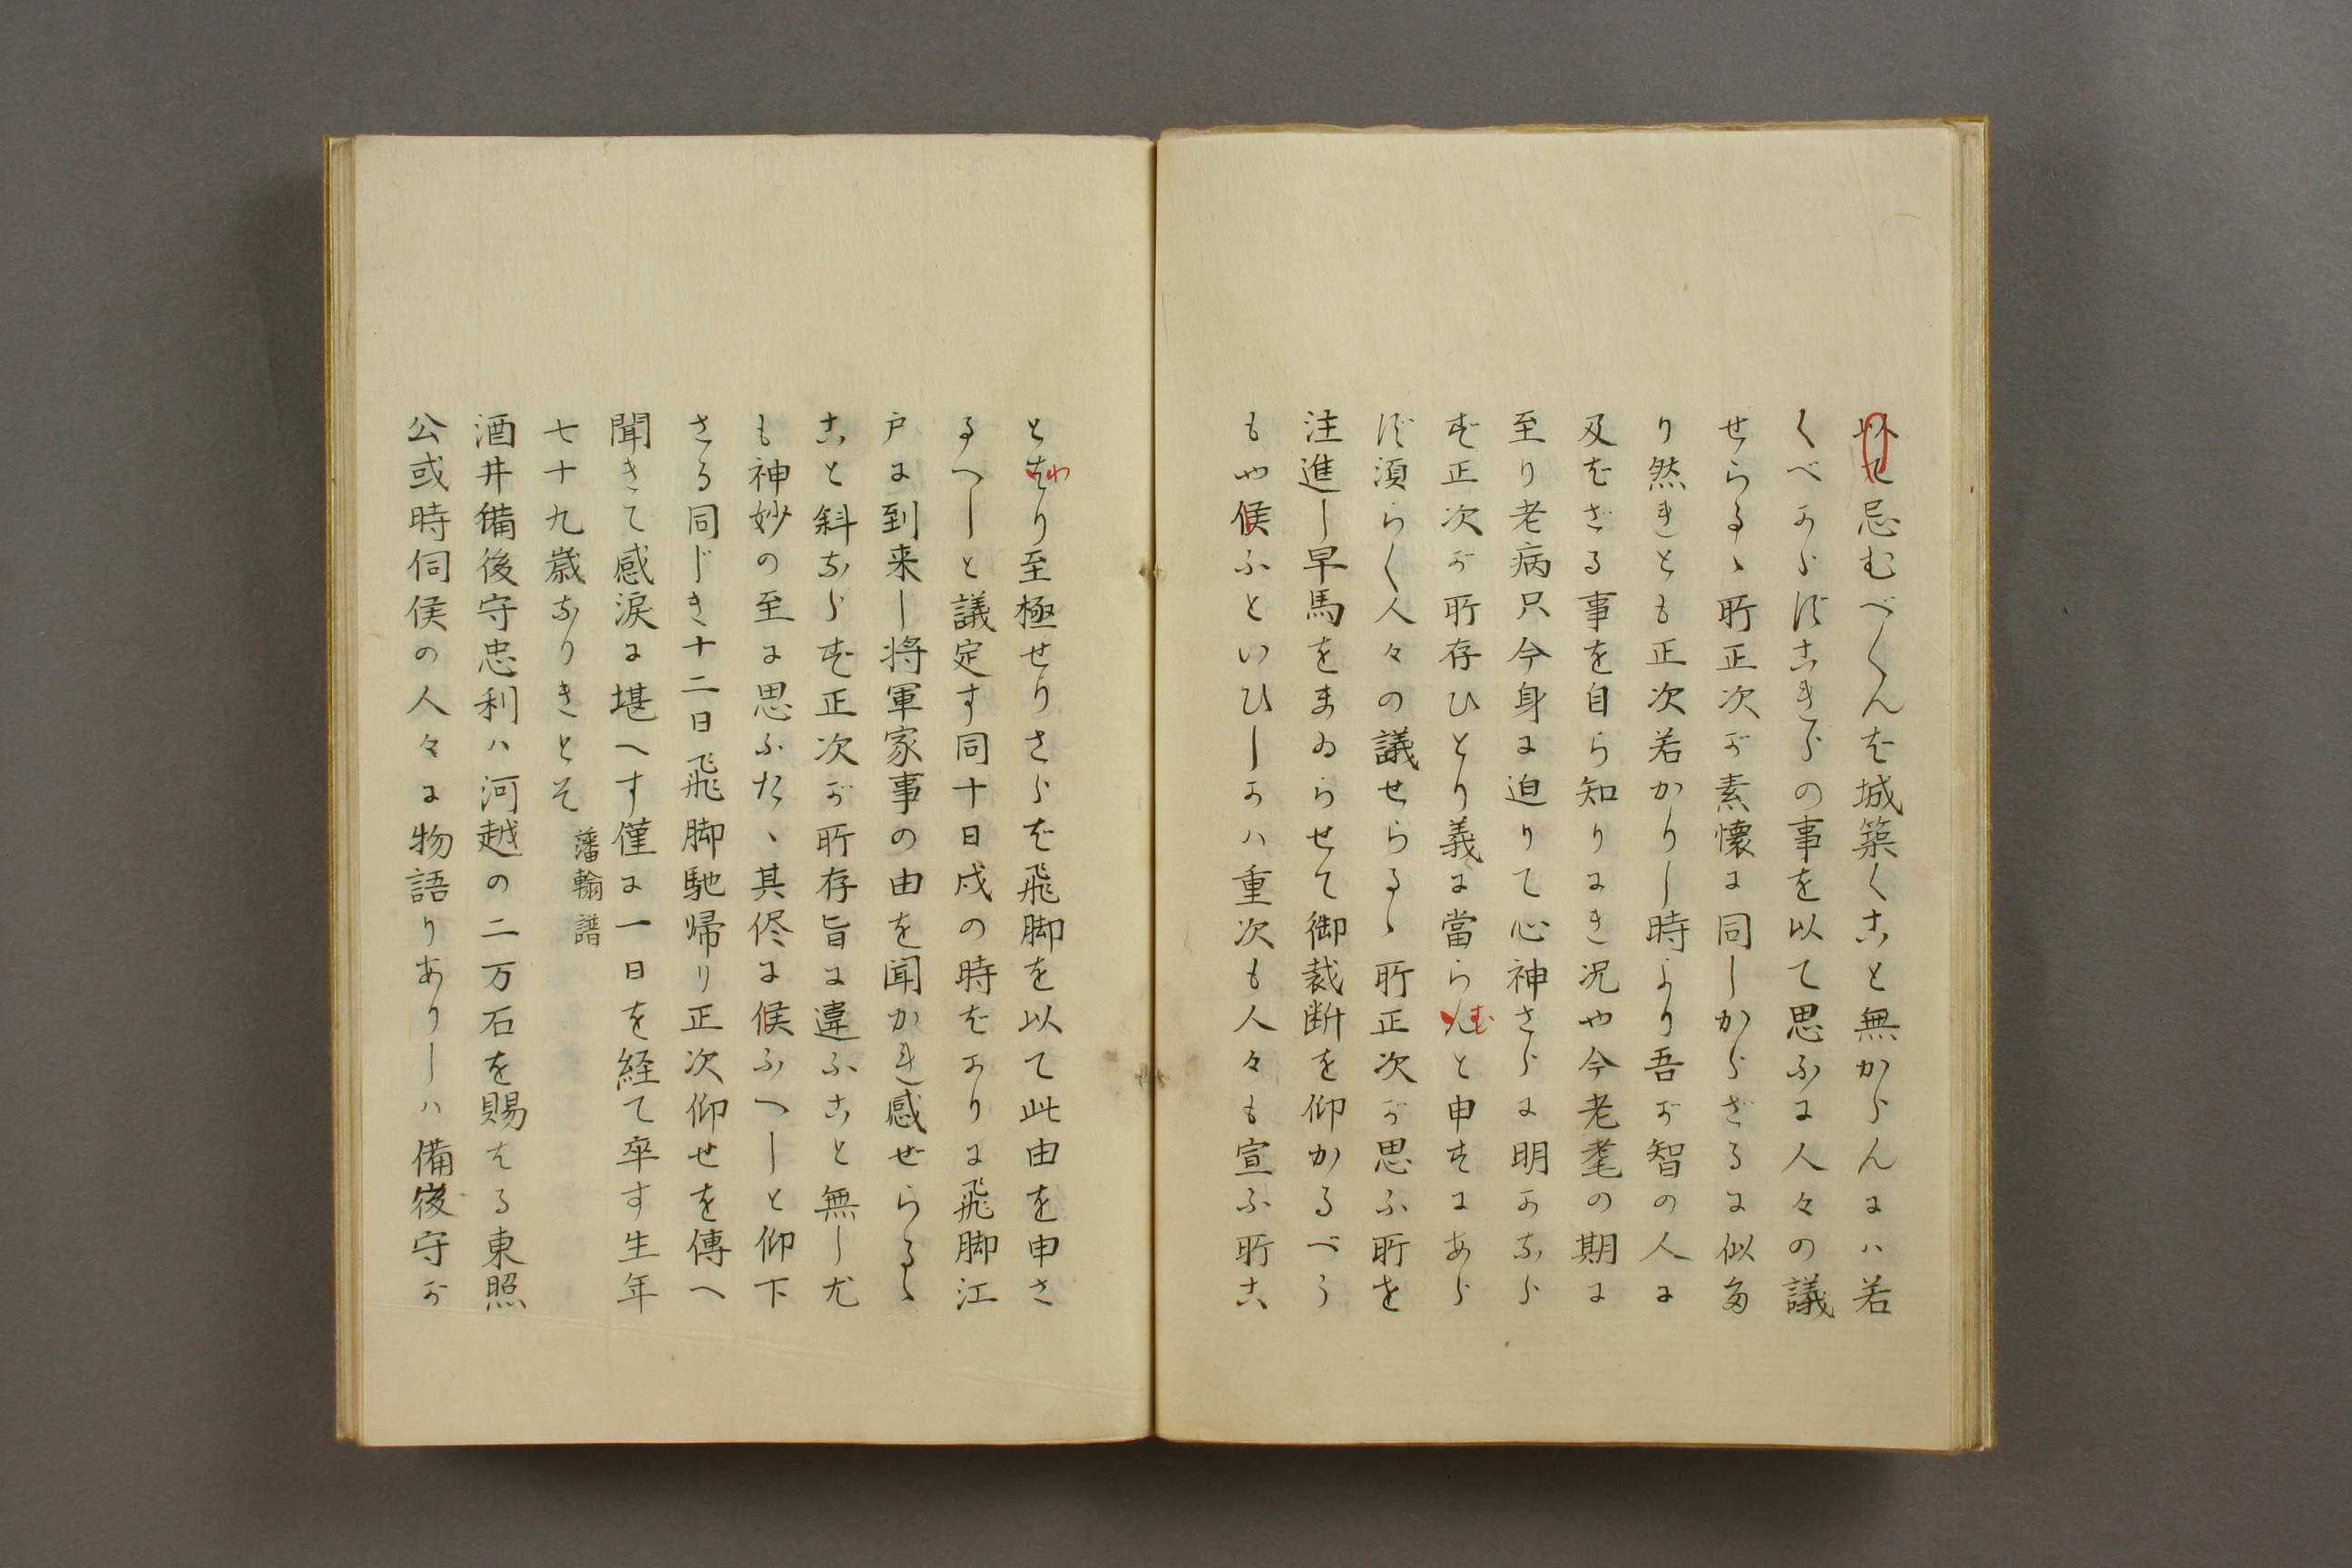 以て忌むべくんば城築くこと無からんには若
くべからずこれらの事を以て思ふに人々の議
せらるゝ所正次が素懐に同しからざるに似た
り然れとも正次若かりし時より吾が智の人に
及ばざる事を自ら知りにき况や今老耄の期に
至り老病只今身に迫りて心神さらに明かなら
ず正次が所存ひとり義に當らむと申すにあら
ず須らく人々の議せらるゝ所正次が思ふ所を
注進し早馬をまゐらせて御裁断を仰かるべう
もや候ふといひしかは重次も人々も宣ふ所こ
とわり至極せりさらば飛脚を以て此由を申さ
るへしと議定す同十日戌の時ばかりに飛脚江
戸に到来し将軍家事の由を聞かれ感ぜらるゝ
こと斜ならず正次が所存旨に違ふこと無し尤
も神妙の至に思ふたゝ其侭に候ふへしと仰下
さる同じき十二日飛脚馳帰り正次仰せを傳へ
聞きて感涙に堪へす僅に一日を経て卒す生年
七十九歳なりきとそ 藩翰譜
酒井備後守忠利ハ河越の二万石を賜はる東照
公或時伺侯の人々に物語りありしハ備後守が